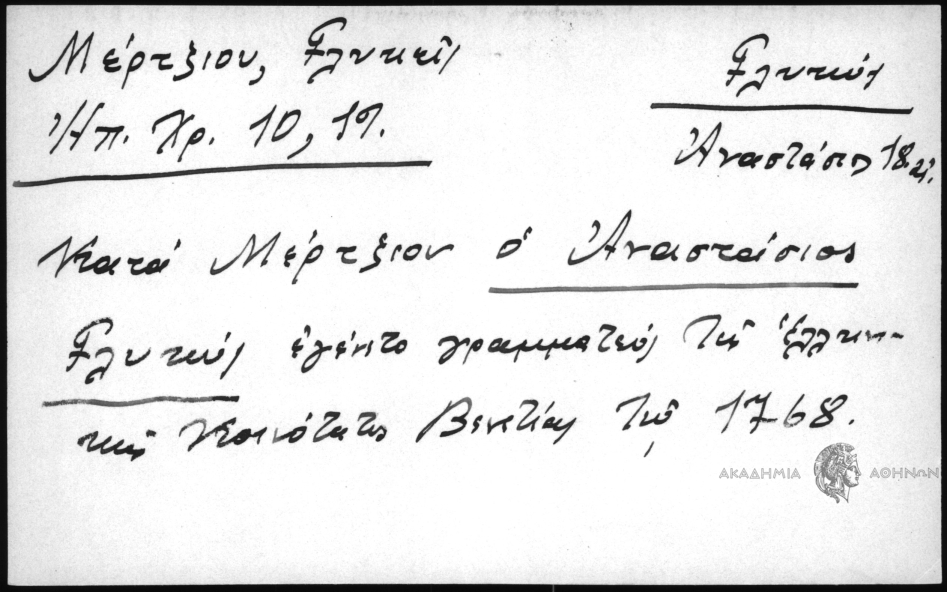 Μέρτζιου, Γλυκεῖς
Ἠπ. Χρ. 10, 19.
Γλυκύς
Ἀναστάσιος 18 αἰ.
Κατά Μέρτζιον ὁ Ἀναστάσιος
Γλυκύς ἐγένετο γραμματεύς τῆς Ἑλλην-
ικῆς Κοινότητος Βενετίας τῷ 1768.
ΑΚΑΔΗΜΙΑ ΑΘΗΝΩΝ